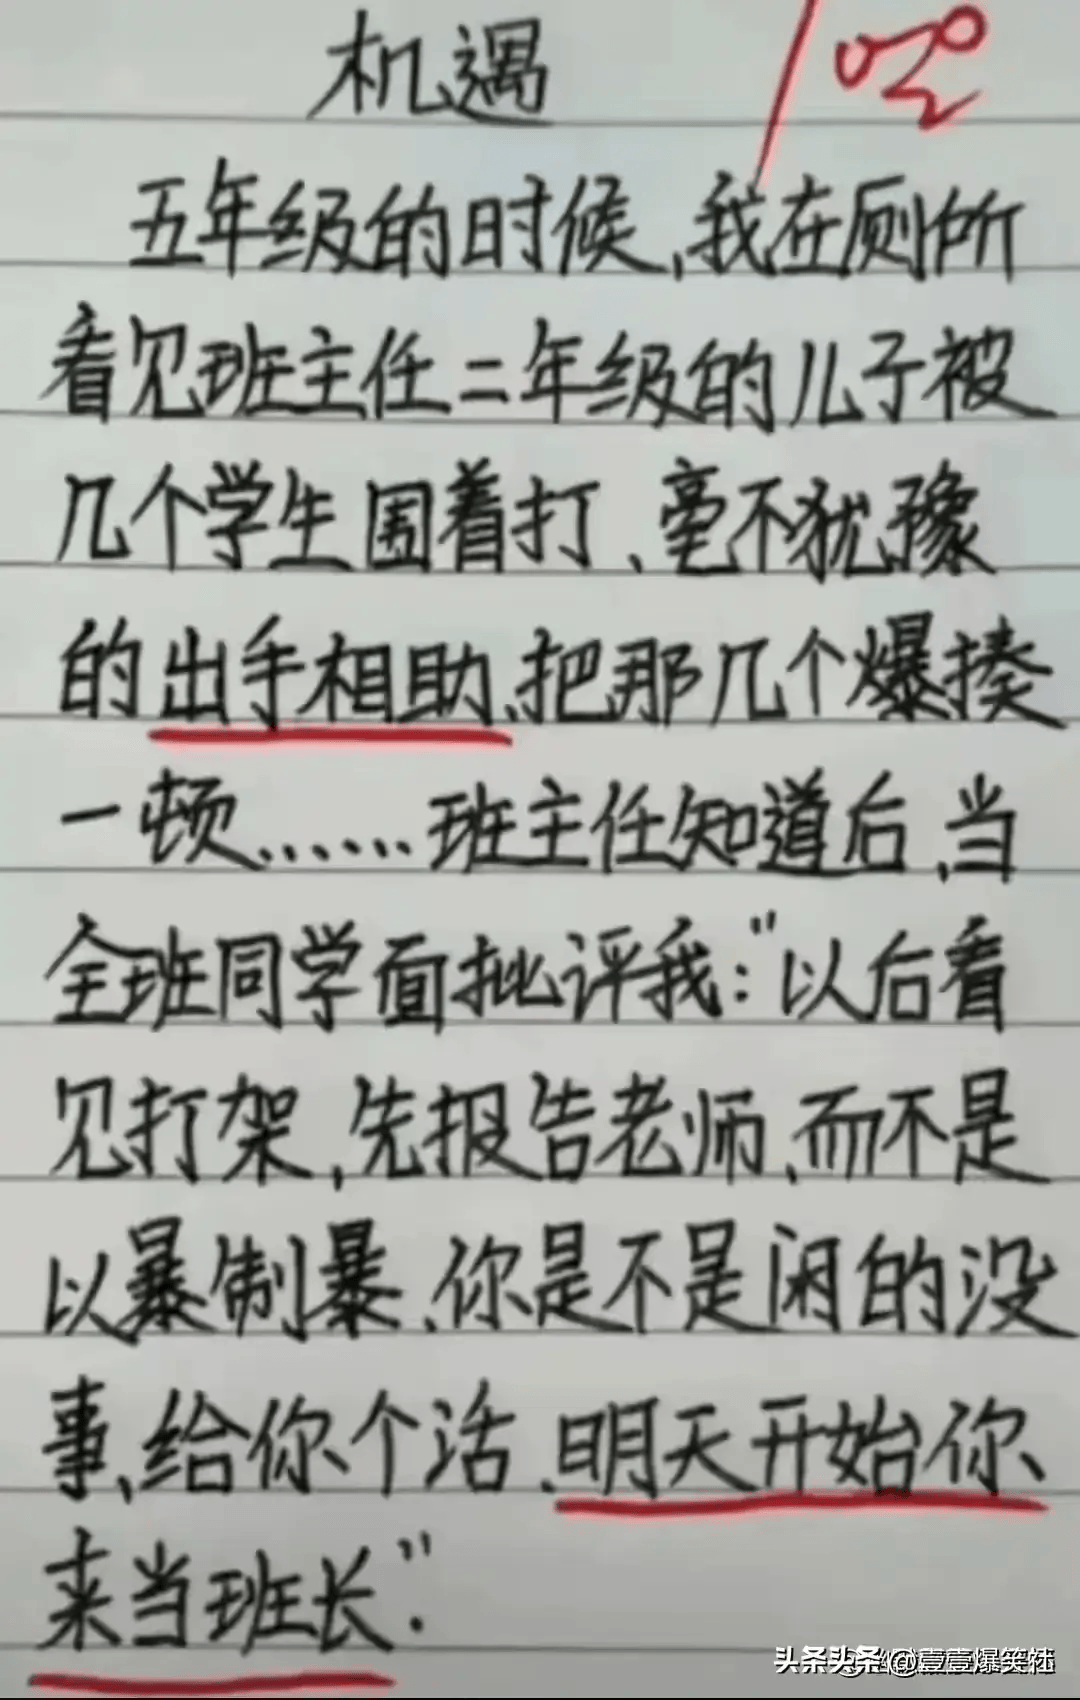 机遇
五年级的时候,我在厕所
看见班主任二年级的儿子被
几个学生围着打、毫不犹豫
的出手相助、把那几个爆揍
一顿……班主任知道后、当
全班同学面批评我:"以后看
见打架,先报告老师、而不是
以暴制暴、你是不是闲的没
事、给你个活、明天开始你
来当班长".
头条 @壹壹爆笑社